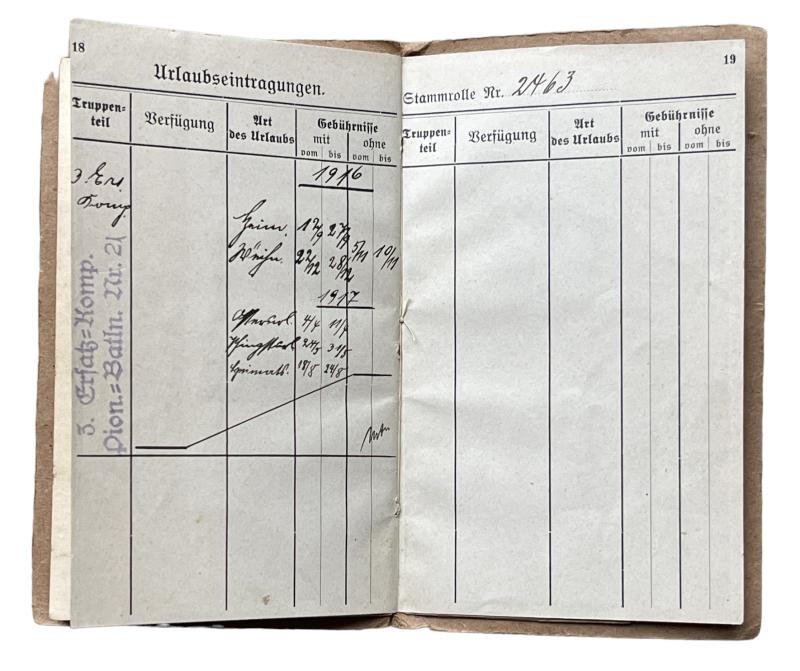 18
Urlaubseintragungen.
Truppen=
teil
Verfügung
Art
des Urlaubs
Gebührnisse
mit
ohne
vom bis vom bis
3 Ers.
Komp.
1916
Heim. 17/9 27/9
Weihn. 22/12 28/12 5/11 10/11
1917
Osterurl. 4/4 11/4
Pfingsturl. 24/5 31/5
Heimats. 18/8 24/8
3. Ersatz=Komp.
Pion.=Batln. Nr. 21
19
Stammrolle Nr. 2463
Truppen=
teil
Verfügung
Art
des Urlaubs
Gebührnisse
mit
ohne
vom bis vom bis